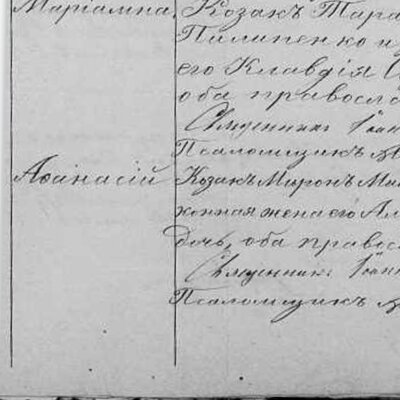 Маріамна. Козакъ Тара
Пилипенко и з
его Клавдія
оба правосла
Священникъ Іоан
Псаломщикъ
Аѳанасій Козакъ Миронъ Ми
конная жена его Ал
дочь, оба правос
Священникъ Іоан
Псаломщикъ